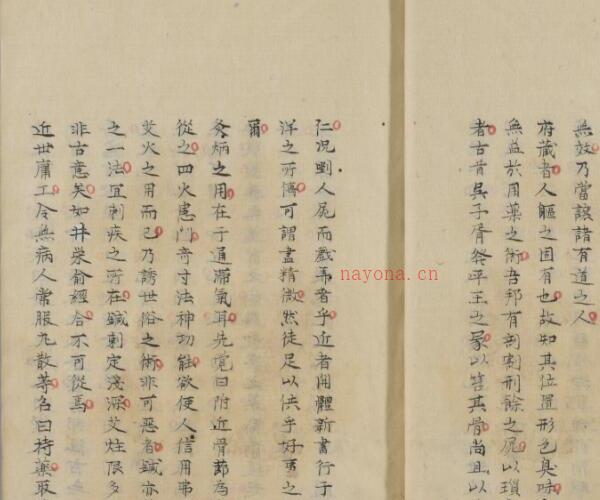 無效乃當詼諸有道之人
府藏者人軀之固有也故知其位置形色臭味
無益於用藥之術吾邦有剖割刑餘之屍以瑣
者古昔吳子胥發平王之冢以笞其骨尚且以
仁况剭人屍而戱弄者乎近者開體新書行于
洋之所傳可謂盡精微然徒足以供乎好事之
爾
灸焫之用在于通滯氣耳先覺曰附近骨節爲
從之四火患門奇寸法神功能欲使人信用弗
艾火之用而已乃誘世俗之術非可惡者鍼亦
之一法宜刺疾之所在鍼刺定淺深艾炷限多
非古意矣如井榮俞經合不可從焉
近世庸工令無病人常服丸散等名曰持藥取
nayona.cn